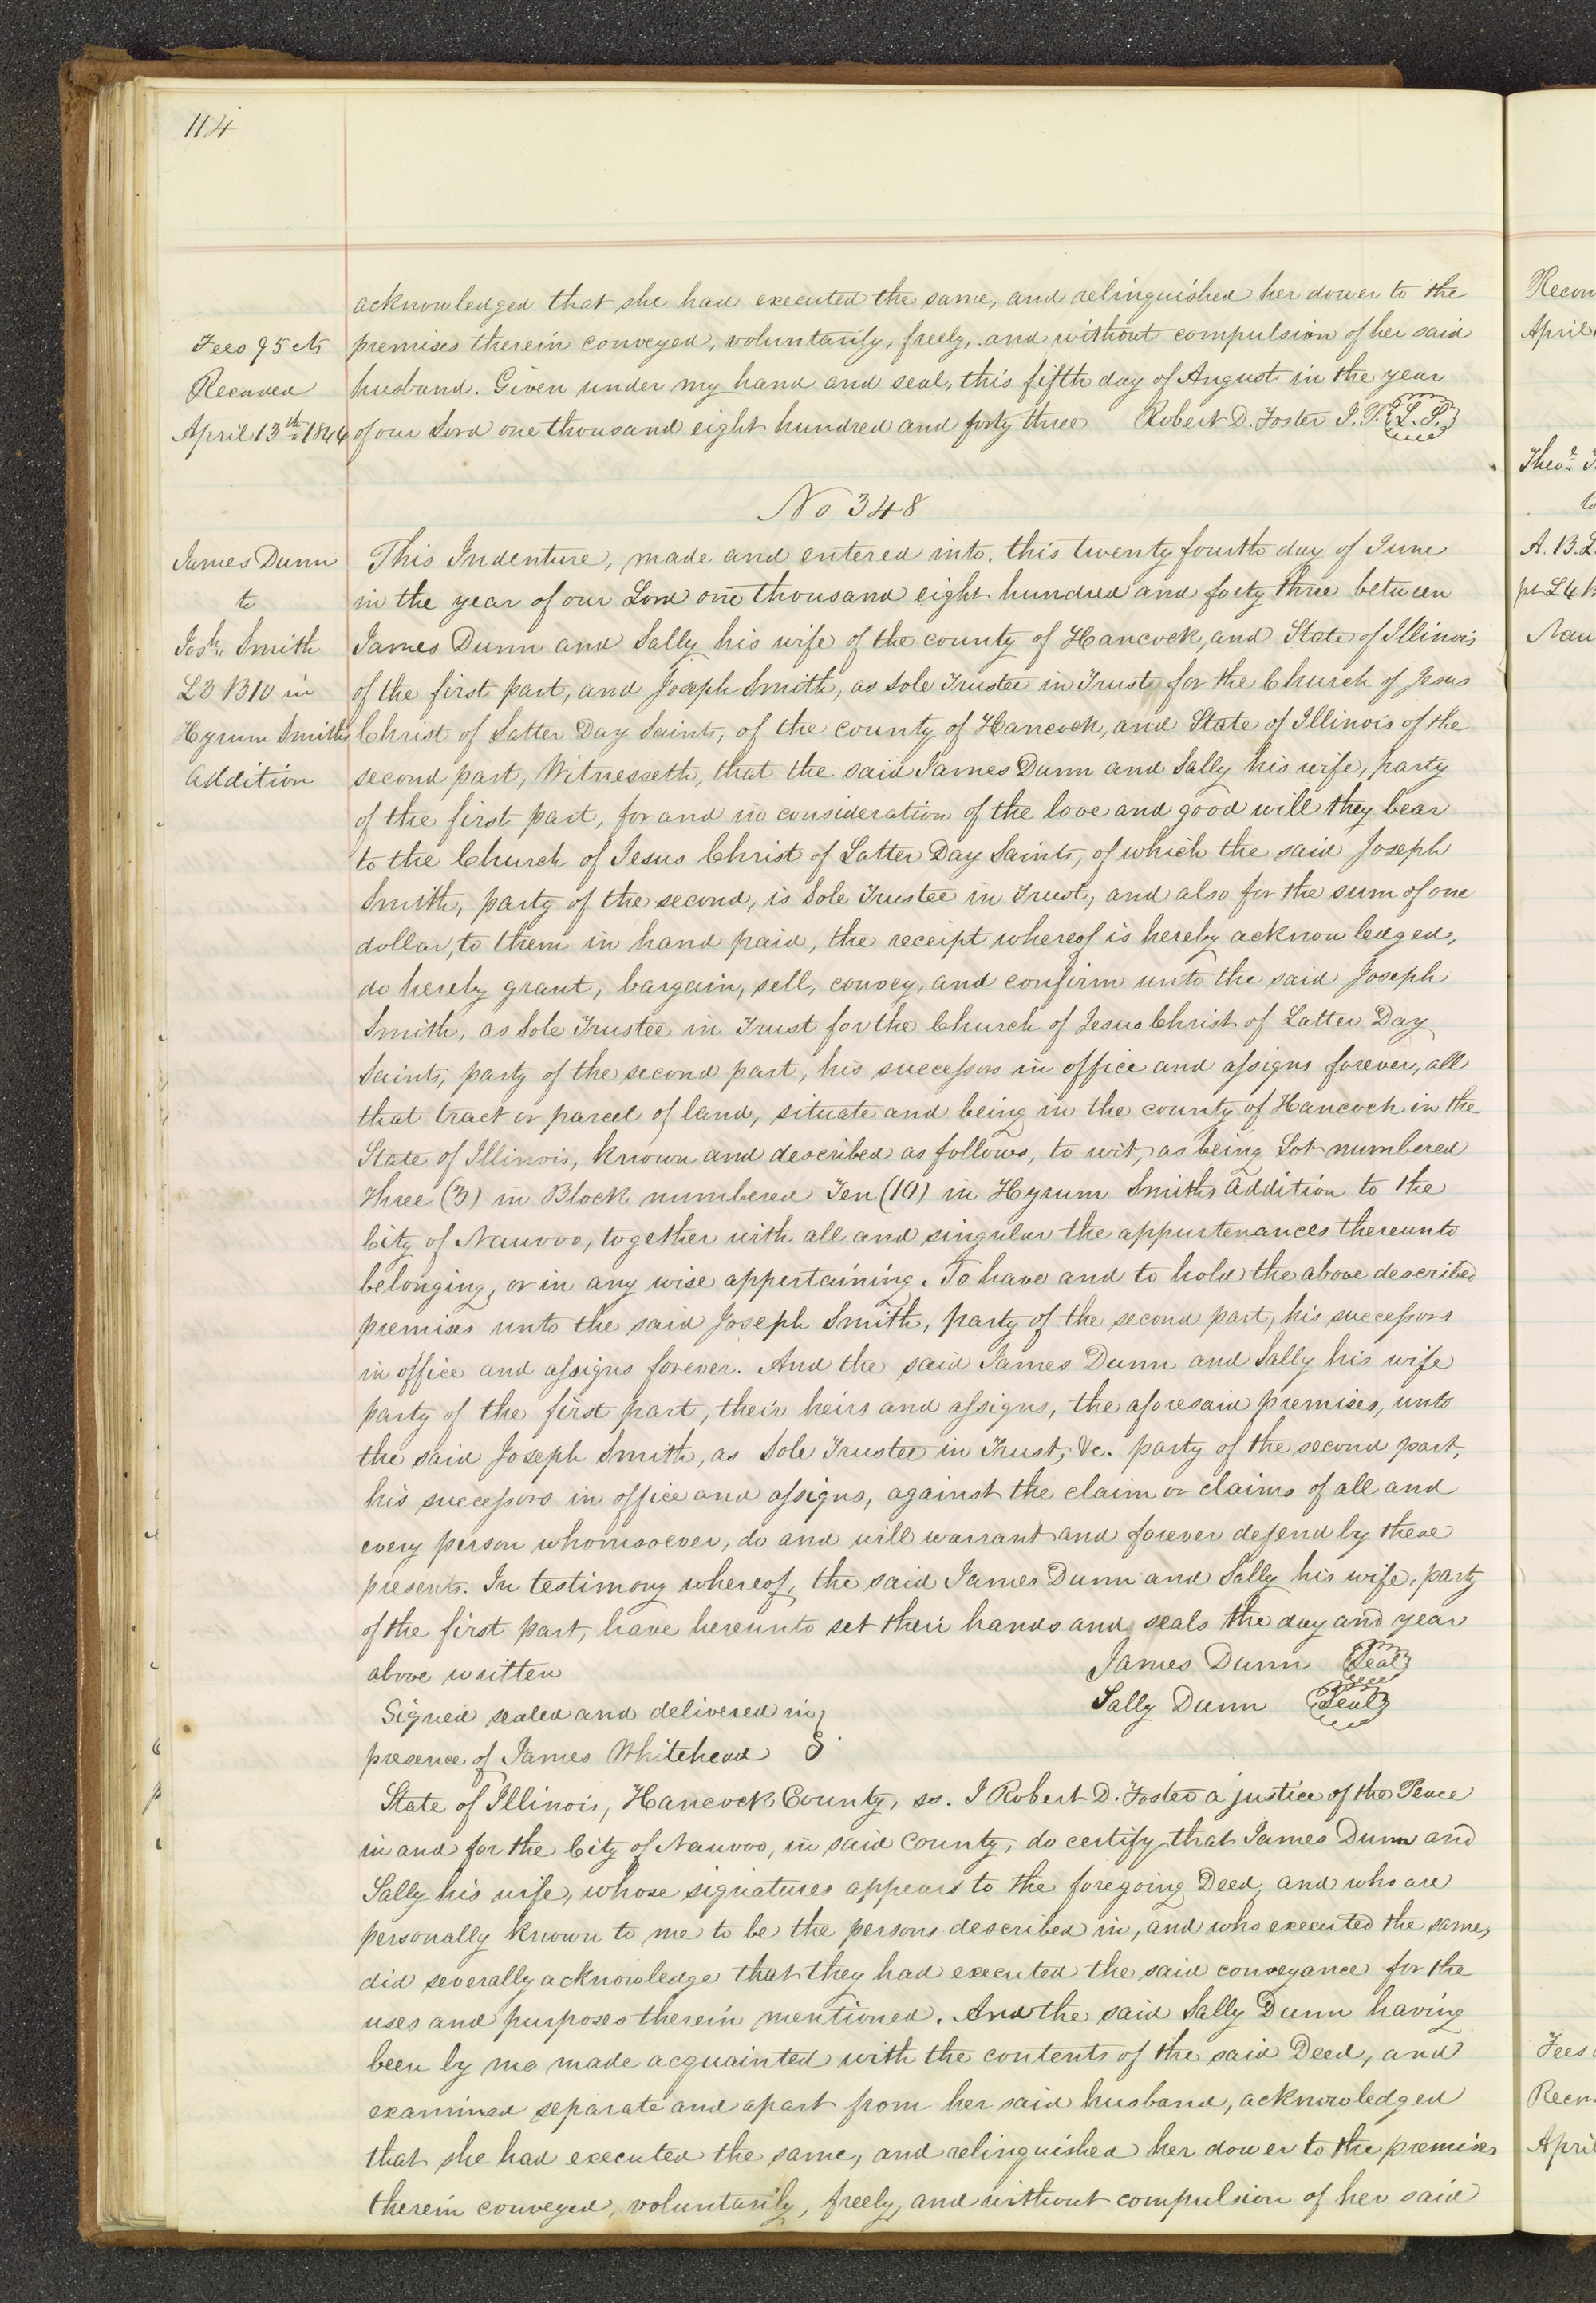 114
acknowledged that she had executed the same, and relinquished her dower to the
Fees 95 cts
premises therein conveyed, voluntarily, freely, and without compulsion of her said
Recorded
husband. Given under my hand and seal, this fifth day of August in the year
April 13th 1844
of our Lord one thousand eight hundred and forty three Robert D. Foster J. P. (L. S.)
No 348
James Dunn
to
Josh. Smith
L3 B10 in
Hyrum Smiths
addition
This Indenture, made and entered into, this twenty fourth day of June
in the year of our Lord one thousand eight hundred and forty three between
James Dunn and Sally his wife of the county of Hancock, and State of Illinois
of the first part, and Joseph Smith, as Sole Trustee in Trust for the Church of Jesus
Christ of Latter Day Saints, of the county of Hancock, and State of Illinois of the
second part, Witnesseth, that the said James Dunn and Sally his wife, party
of the first part, for and in consideration of the love and good will they bear
to the Church of Jesus Christ of Latter Day Saints, of which the said Joseph
Smith, party of the second, is Sole Trustee in Trust, and also for the sum of one
dollar, to them in hand paid, the receipt whereof is hereby acknowledged,
do hereby grant, bargain, sell, convey, and confirm unto the said Joseph
Smith, as Sole Trustee in Trust for the Church of Jesus Christ of Latter Day
Saints, party of the second part, his successors in office and assigns forever, all
that tract or parcel of land, situate and being in the county of Hancock in the
State of Illinois, known and described as follows, to wit, as being Lot numbered
three (3) in Block numbered Ten (10) in Hyrum Smiths addition to the
City of Nauvoo, together with all and singular the appurtenances thereunto
belonging, or in any wise appertaining. To have and to hold the above described
premises unto the said Joseph Smith, party of the second part, his successors
in office and assigns forever. And the said James Dunn and Sally his wife
party of the first part, their heirs and assigns, the aforesaid premises, unto
the said Joseph Smith, as Sole Trustee in Trust, &c. party of the second part,
his successors in office and assigns, against the claim or claims of all and
every person whomsoever, do and will warrant and forever defend by these
presents. In testimony whereof, the said James Dunn and Sally his wife, party
of the first part, have hereunto set their hands and seals the day and year
above written James Dunn (Seal)
Signed sealed and delivered in } Sally Dunn (Seal)
presence of James Whitehead
State of Illinois, Hancock County, ss. I Robert D. Foster a justice of the Peace
in and for the City of Nauvoo, in said County, do certify that James Dunn and
Sally his wife, whose signatures appears to the foregoing Deed, and who are
personally known to me to be the persons described in, and who executed the same,
did severally acknowledge that they had executed the said conveyance for the
uses and purposes therein mentioned. And the said Sally Dunn having
been by me made acquainted with the contents of the said Deed, and
examined separate and apart from her said husband, acknowledged
that she had executed the same, and relinquished her dower to the premises
therein conveyed, voluntarily, freely, and without compulsion of her said
April
A. B. L
Fees